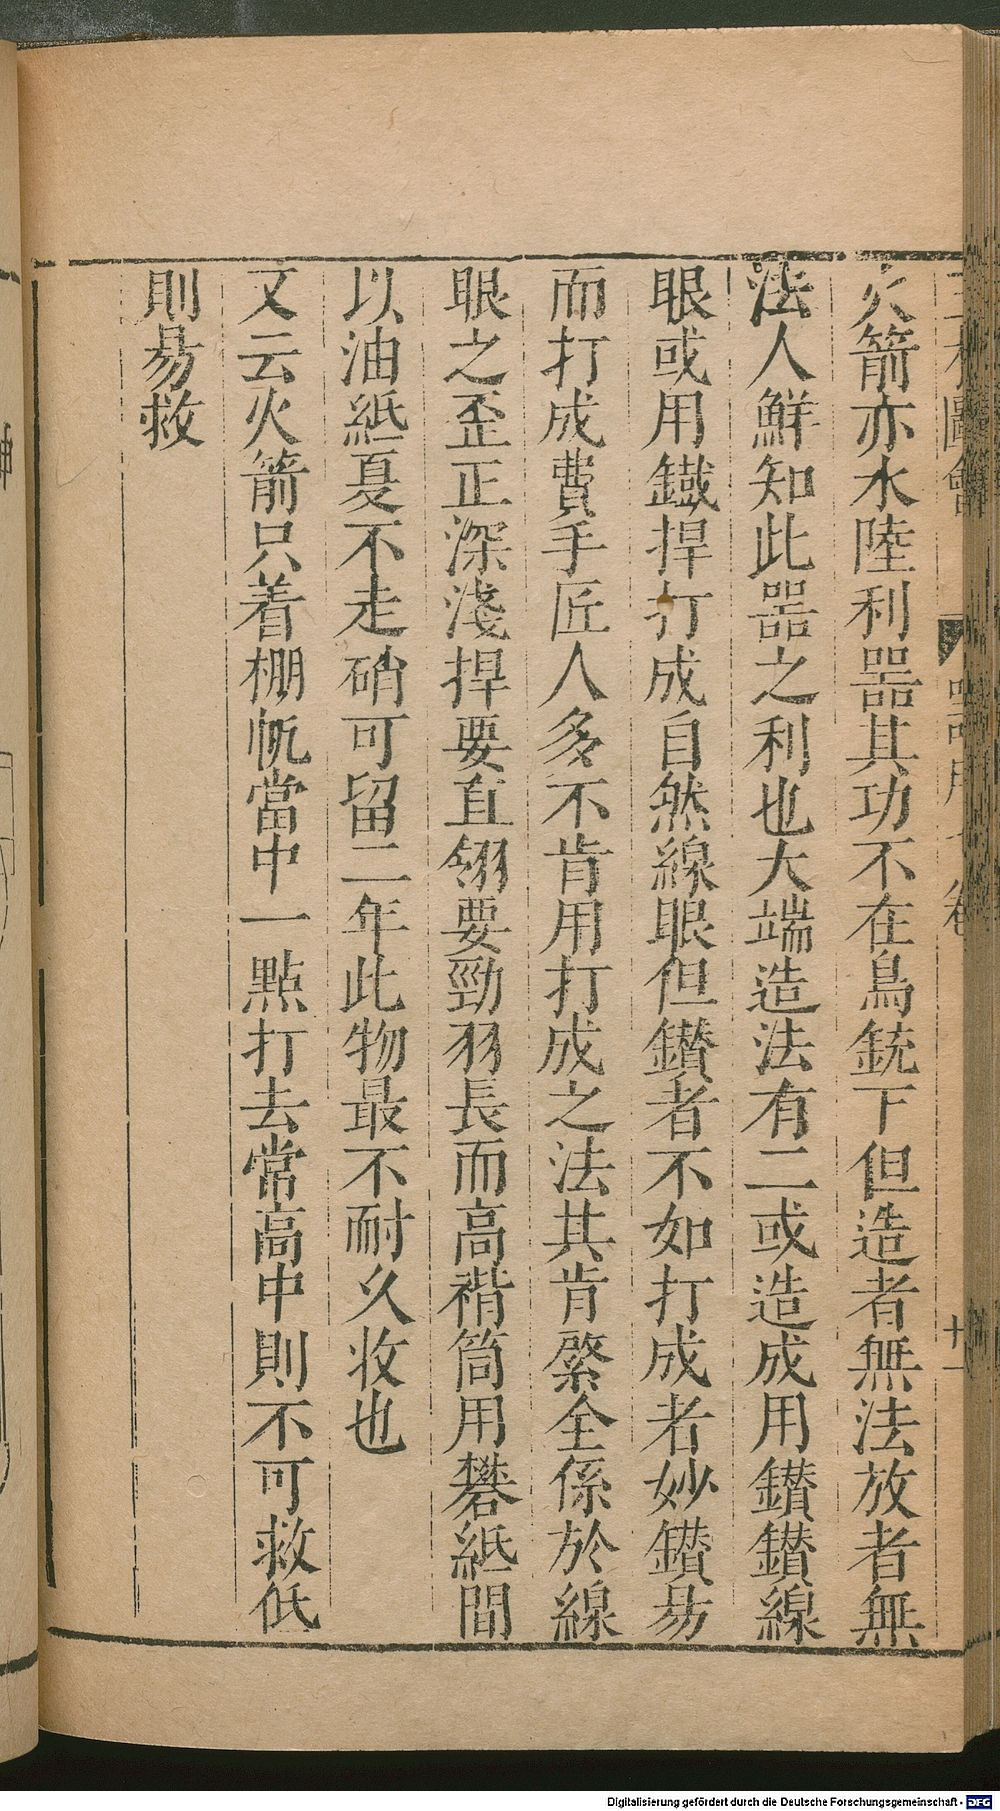 三才圖會 器用 卷 廿一
火箭亦水陸利器其功不在鳥銃下但造者無法放者無
法人鮮知此器之利也大端造法有二或造成用鑚鑚線
眼或用鐵捍打成自然線眼但鑚者不如打成者妙鑚易
而打成費手匠人多不肯用打成之法其肯綮全係於線
眼之歪正深淺捍要直翎要勁羽長而高褙筒用礬紙間
以油紙夏不走硝可留二年此物最不耐久收也
又云火箭只着棚帆當中一點打去常高中則不可救低
則易救
Digitalisierung gefördert durch die Deutsche Forschungsgemeinschaft - DFG